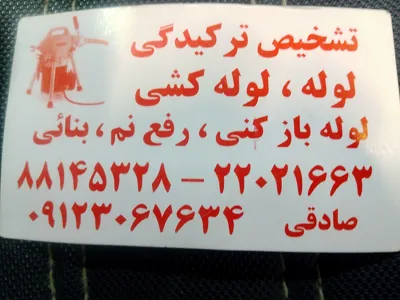 تشخیص ترکیدگی
لوله ، لوله کشی
لوله باز کنی ، رفع نم ، بنائی
۸۸۱۴۵۳۲۸ – ۲۲۰۲۱۶۶۳
صادقی ۰۹۱۲۳۰۶۷۶۳۴